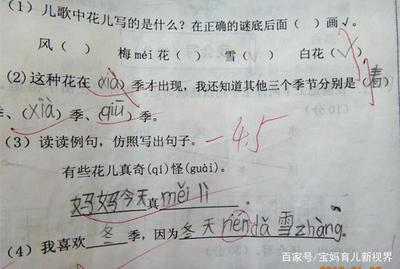 (1) 儿歌中花儿写的是什么？在正确的谜底后面（ ）画√。
风（ ） 梅méi花（ ） 雪（ ） 白花（√）
(2)这种花在（xià）季才出现，我还知道其他三个季节分别是（春）
季、（xià）季、（qiū）季。
(3) 读读例句，仿照写出句子。 -4.5
有些花儿真奇(qí)怪(guài)。
妈妈今天真měi lì
(4) 我喜欢冬季，因为冬天rén dǎ 雪zhàng。
百家号/宝妈育儿新视界